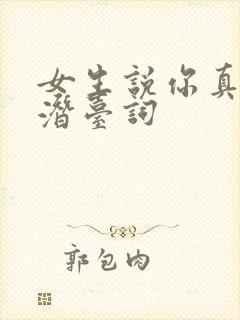 女生説你真
潛臺詞
郭包肉